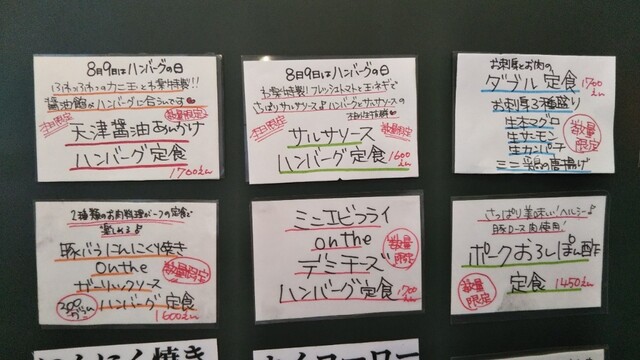 8月9日はハンバーグの日
ふわっふわっのカニ玉とお薬特製!!
醤油餡がハンバーグに合うんです
本日限定
数量限定
天津醤油あんかけ
ハンバーグ定食
1700えん
8月9日はハンバーグの日
お薬特製!フレッシュトマトと玉ネギで
さっぱりサルサソース♪ハンバーグとサルサソースの
相性抜群
本日限定
数量限定
サルサソース
ハンバーグ定食
1600えん
お刺身とお肉の
ダブル定食
1700えん
お刺身3種盛り
生本マグロ
生サーモン
生カンパチ
数量限定
ミニ鶏の唐揚げ
2種類のお肉料理が一つの定食で
楽しめる♪
豚バラにんにく焼き
on the
数量限定
ガーリックソース
200グラム
ハンバーグ定食
1600えん
ミニエビフライ
on the
数量限定
デミチーズ
ハンバーグ定食
1700えん
さっぱり美味しい!ヘルシー♪
豚ロース肉使用!
ポークおろしぽん酢
数量限定
定食
1450えん
にんにく焼き